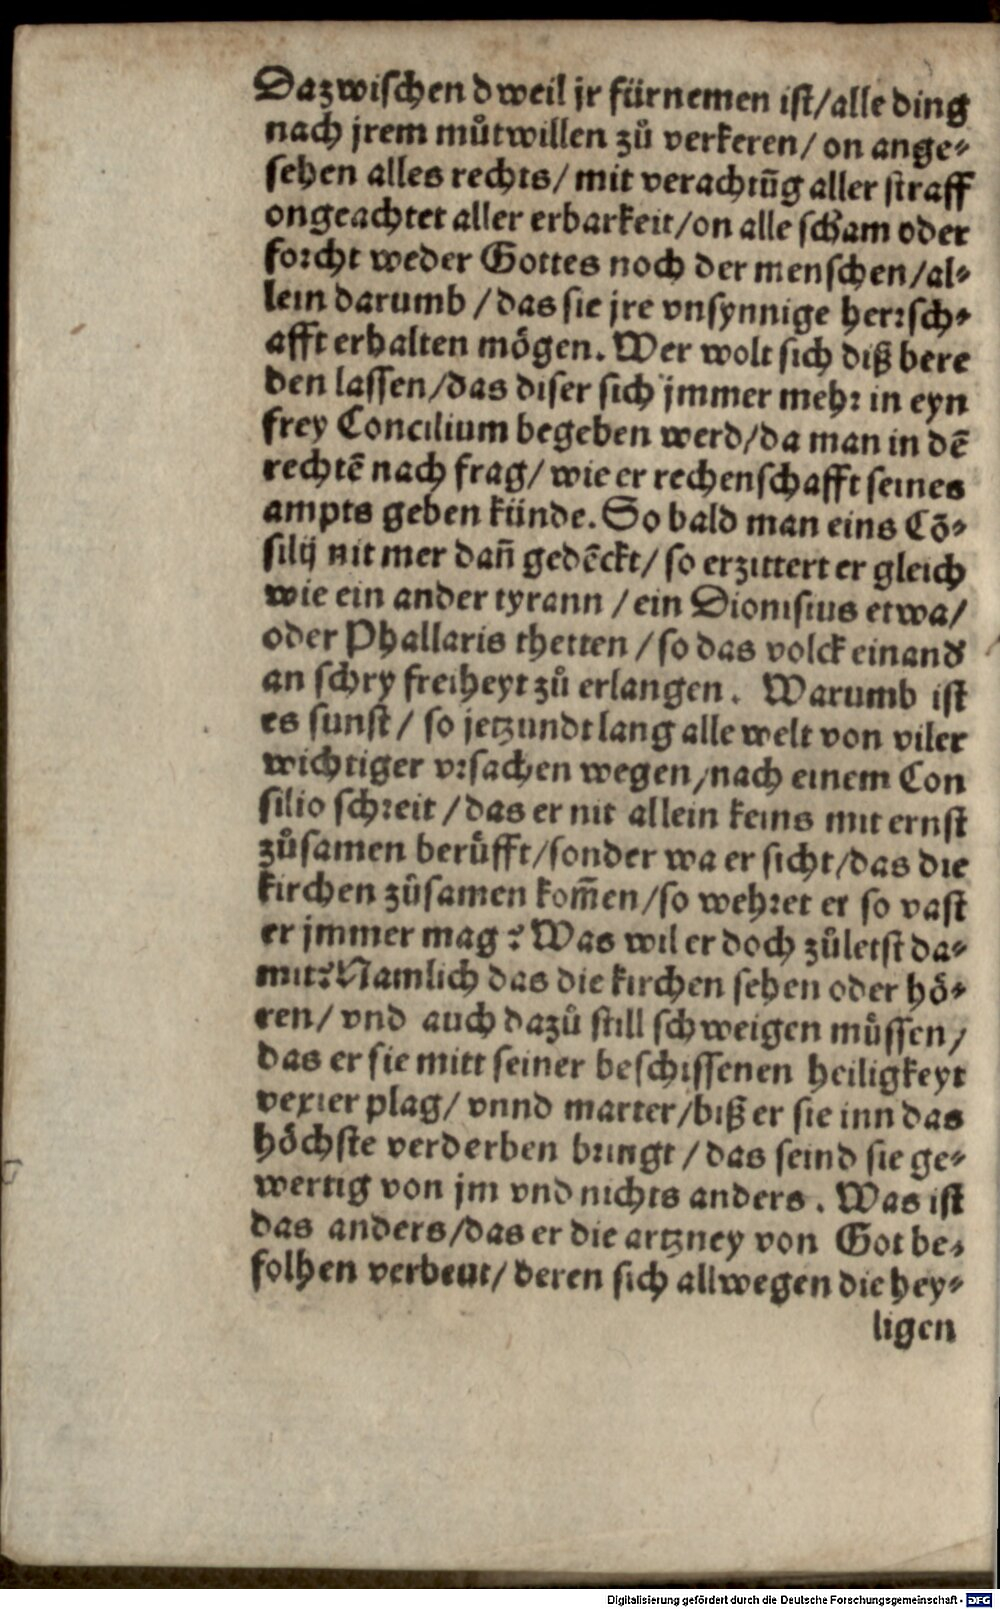 Dazwischen dweil jr fürnemen ist/alle ding
nach jrem můtwillen zů verkeren/ on ange⸗
sehen alles rechts/ mit verachtūg aller straff
ongeachtet aller erbarkeit/on alle scham oder
forcht weder Gottes noch der menschen/al⸗
lein darumb /das sie jre vnsynnige herrsch⸗
afft erhalten mögen. Wer wolt sich diß bere
den lassen/das diser sich jmmer mehr in eyn
frey Concilium begeben werd/da man in dē
rechtē nach frag/ wie er rechenschafft seines
ampts geben künde. So bald man eins Cō⸗
silij nit mer dañ gedēckt/ so erzittert er gleich
wie ein ander tyrann /ein Dionisius etwa/
oder Phallaris thetten /so das volck einand
an schry freiheyt zů erlangen. Warumb ist
es sunst/ so jetzundt lang alle welt von viler
wichtiger vrsachen wegen/nach einem Con
silio schreit /das er nit allein keins mit ernst
zůsamen berüfft/sonder wa er sicht/das die
kirchen zůsamen kom̄en/so wehret er so vast
er jmmer mag? Was wil er doch zůletst da⸗
mit? Namlich das die kirchen sehen oder hö⸗
ren/ vnd auch dazů still schweigen müssen/
das er sie mitt seiner beschissenen heiligkeyt
vexier plag/ vnnd marter/biß er sie inn das
höchste verderben bringt /das seind sie ge⸗
wertig von jm vnd nichts anders. Was ist
das anders/das er die artzney von Got be⸗
folhen verbeut/ deren sich allwegen die hey⸗
ligen
Digitalisierung gefördert durch die Deutsche Forschungsgemeinschaft - DFG